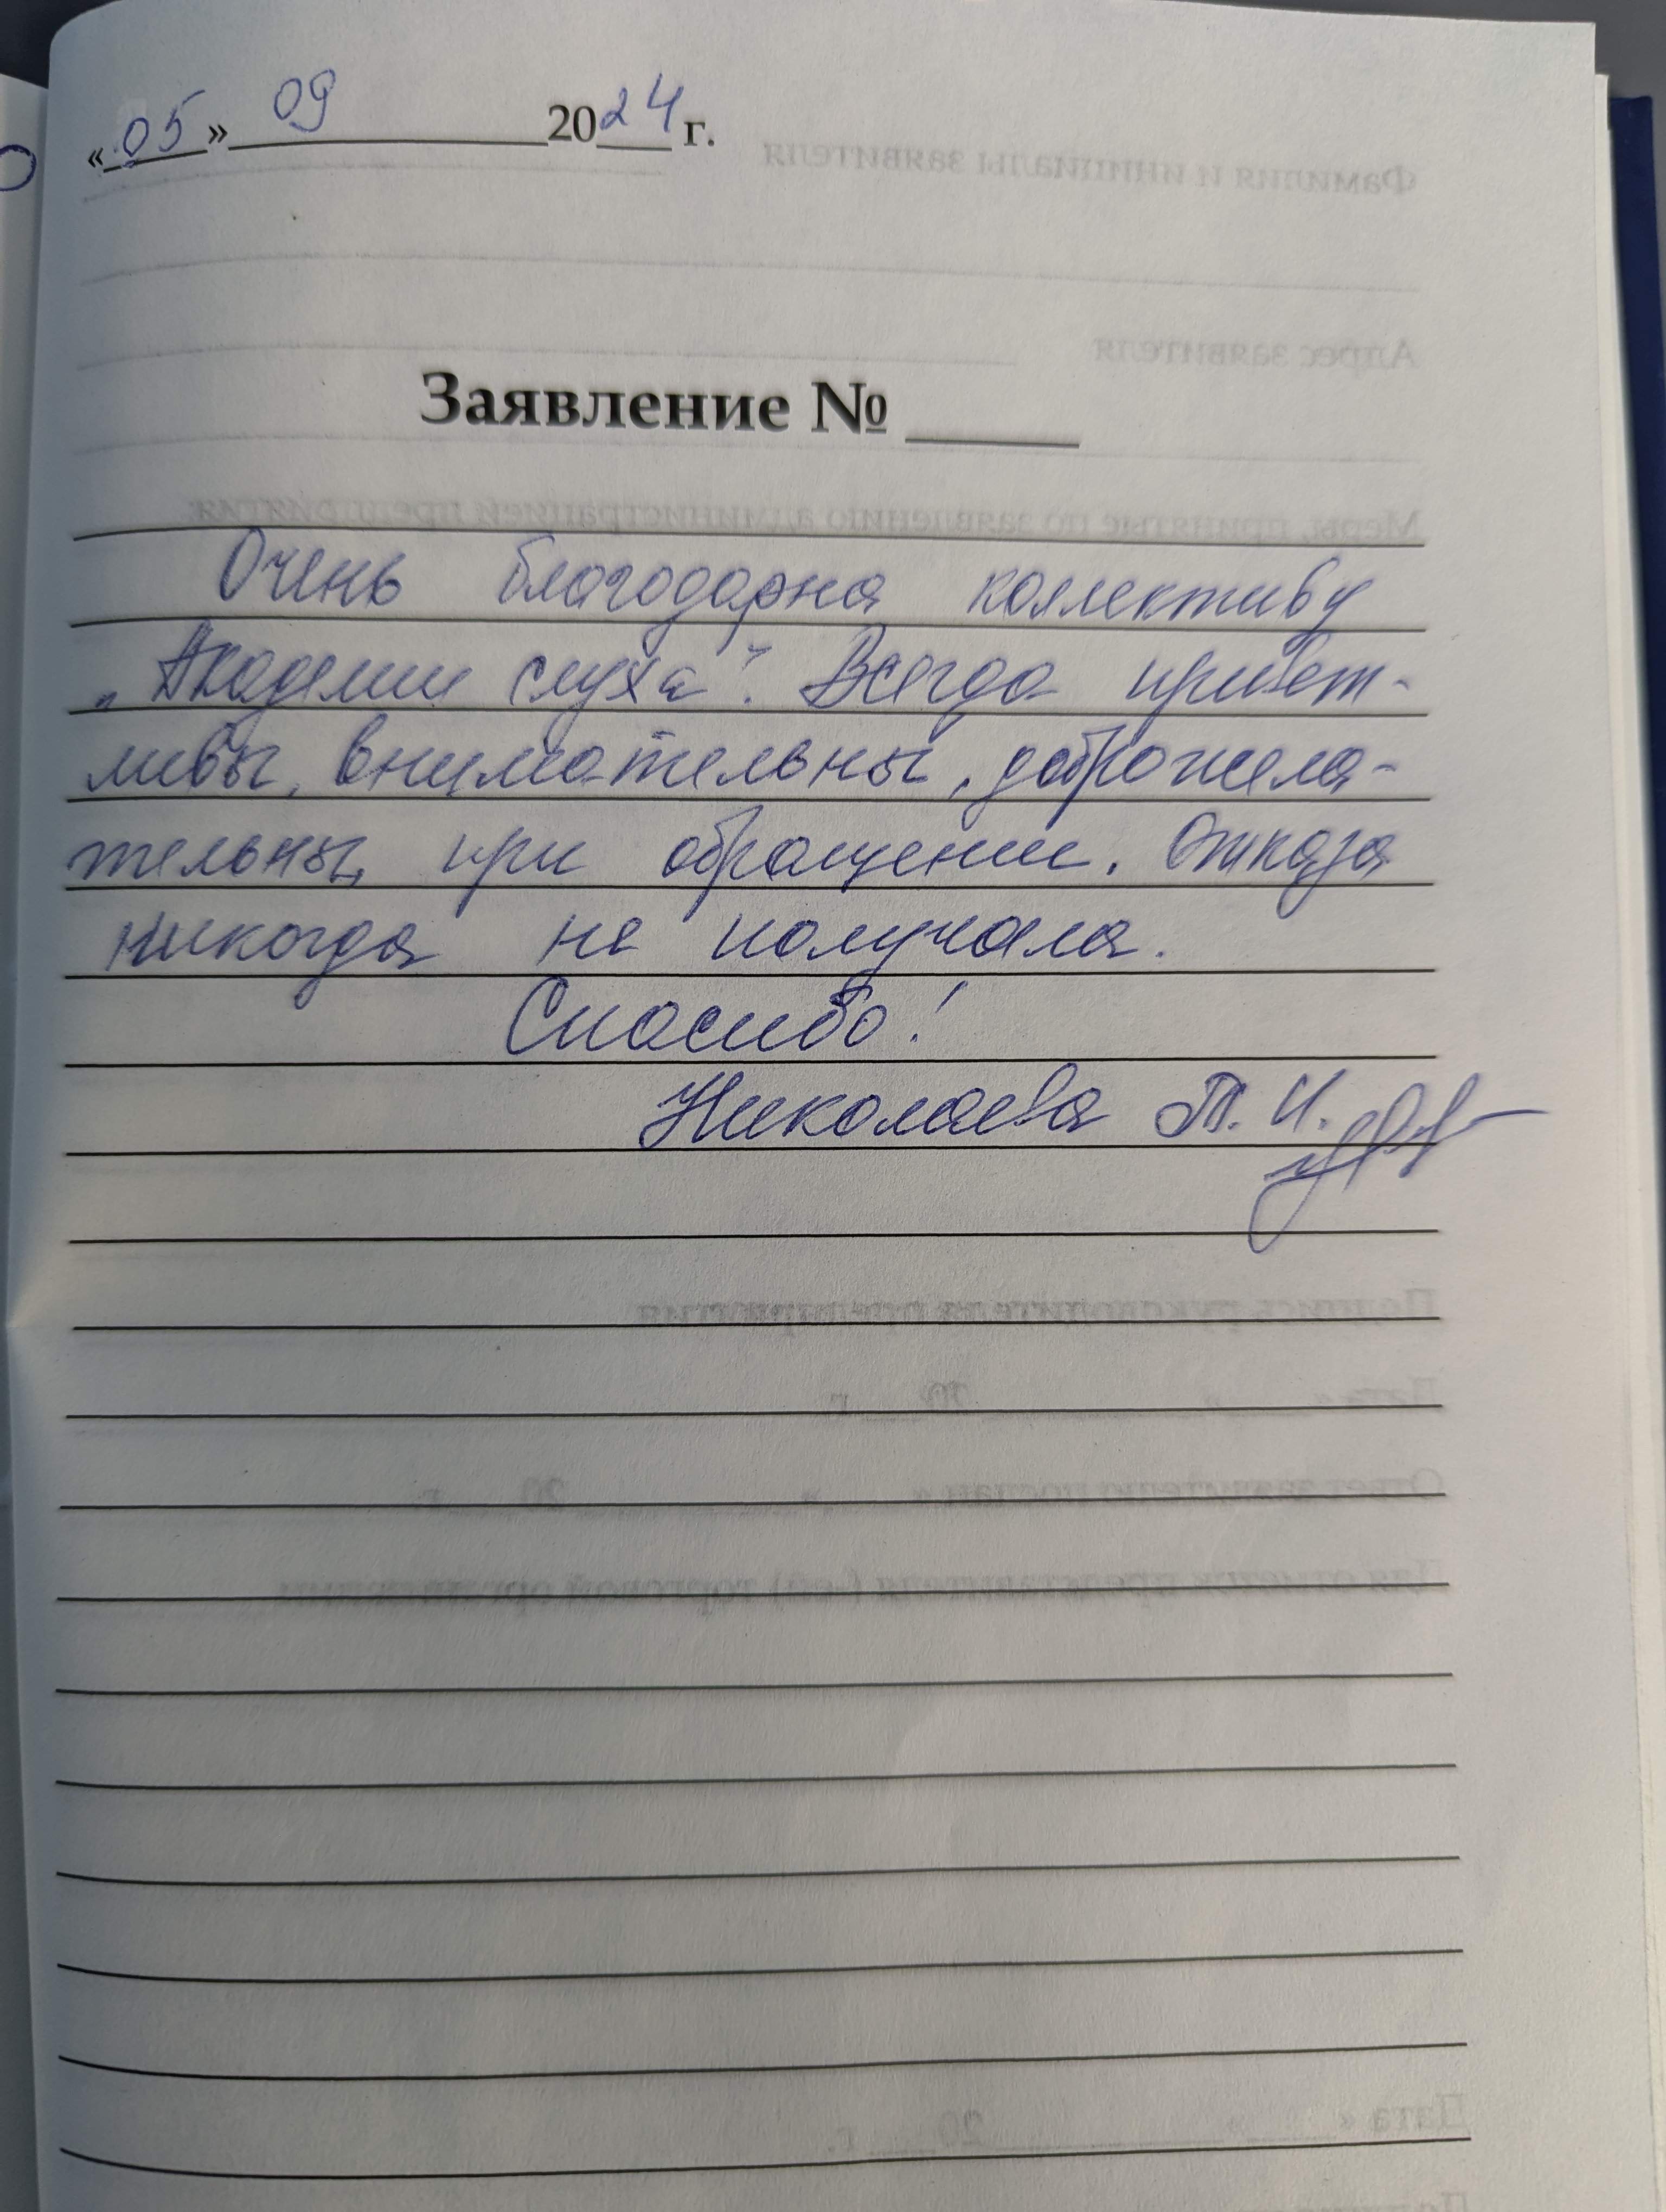 «05» 09 2024 г.
Заявление № ____
Очень благодарна коллективу
„Академии слуха". Всегда привет-
ливы, внимательны, доброжела-
тельны при обращении. Отказа
никогда не получала.
Спасибо!
Николаева Т. И.